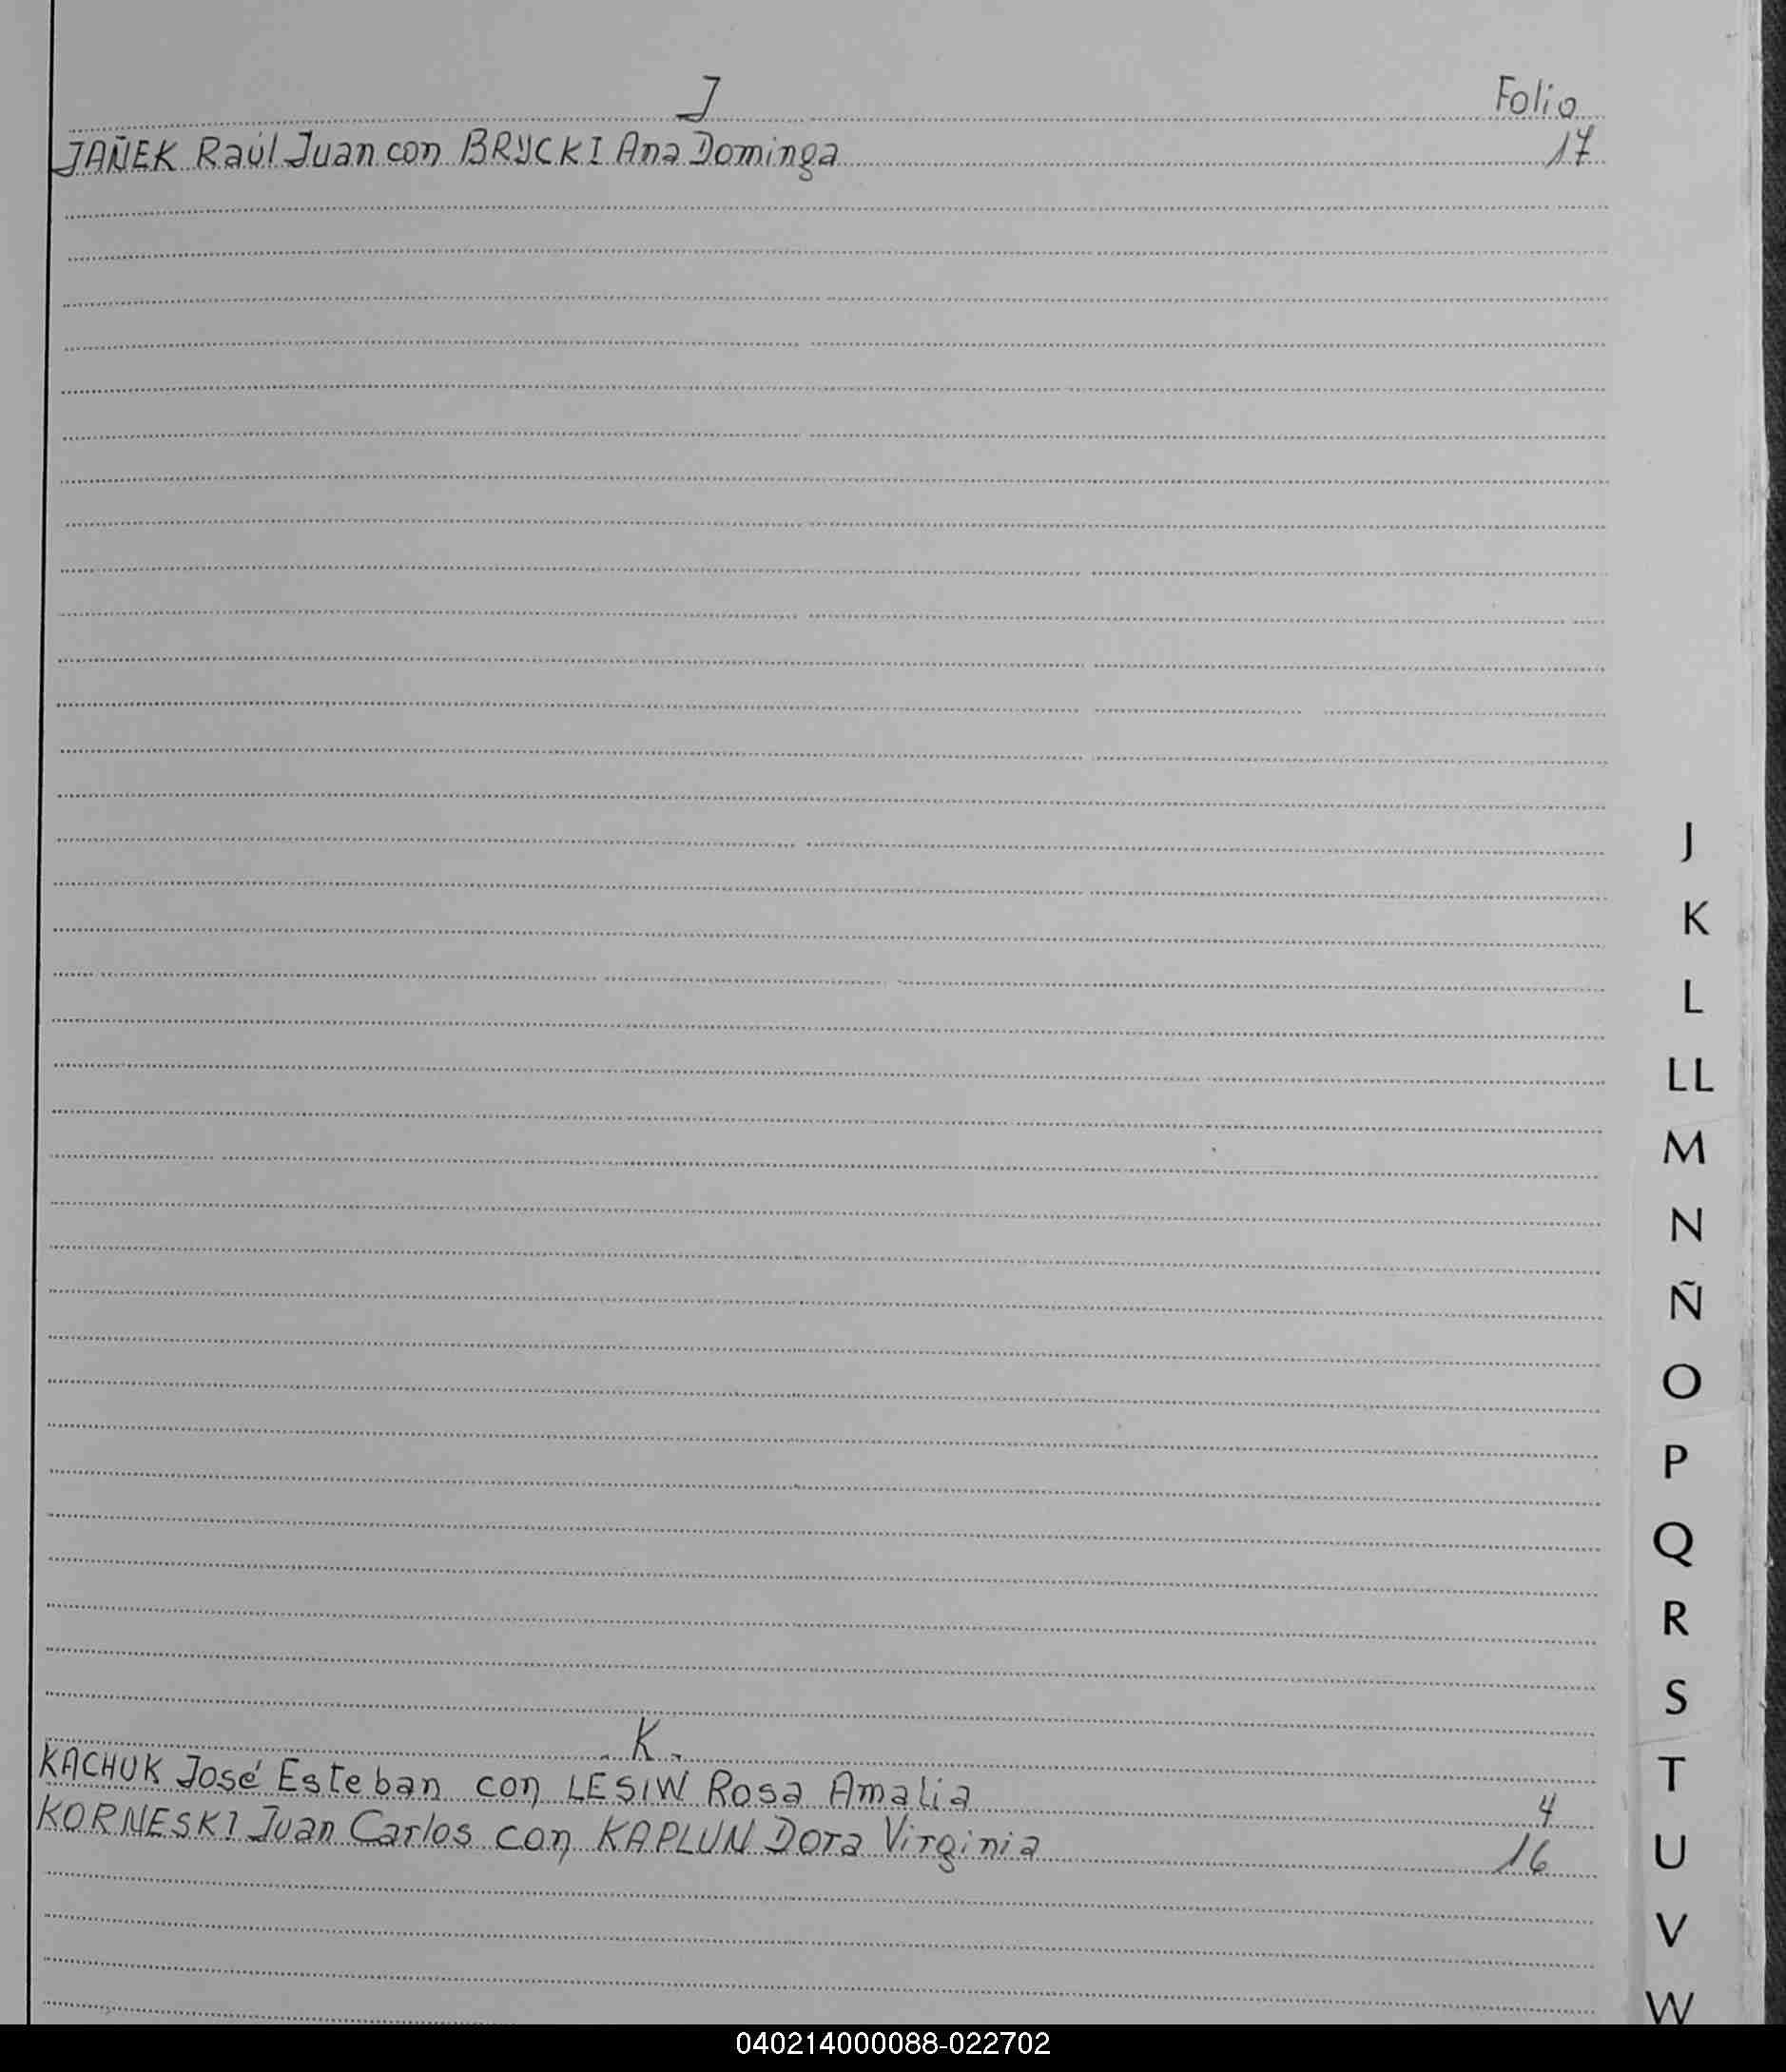 J Folio
JAÑEK Raúl Juan con BRYCKI Ana Dominga 17
K
KACHUK José Esteban con LESIW Rosa Amalia 4
KORNESKI Juan Carlos con KAPLUN Dora Virginia 16
J
K
L
LL
M
N
Ñ
O
P
Q
R
S
T
U
V
W
040214000088-022702